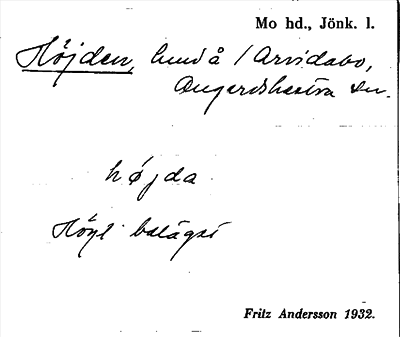 Mo hd., Jönk. l.
Höjden, hmd å / Arvidabo,
Ängardshestra sn.
höjda
Högt belägst
Fritz Andersson 1932.